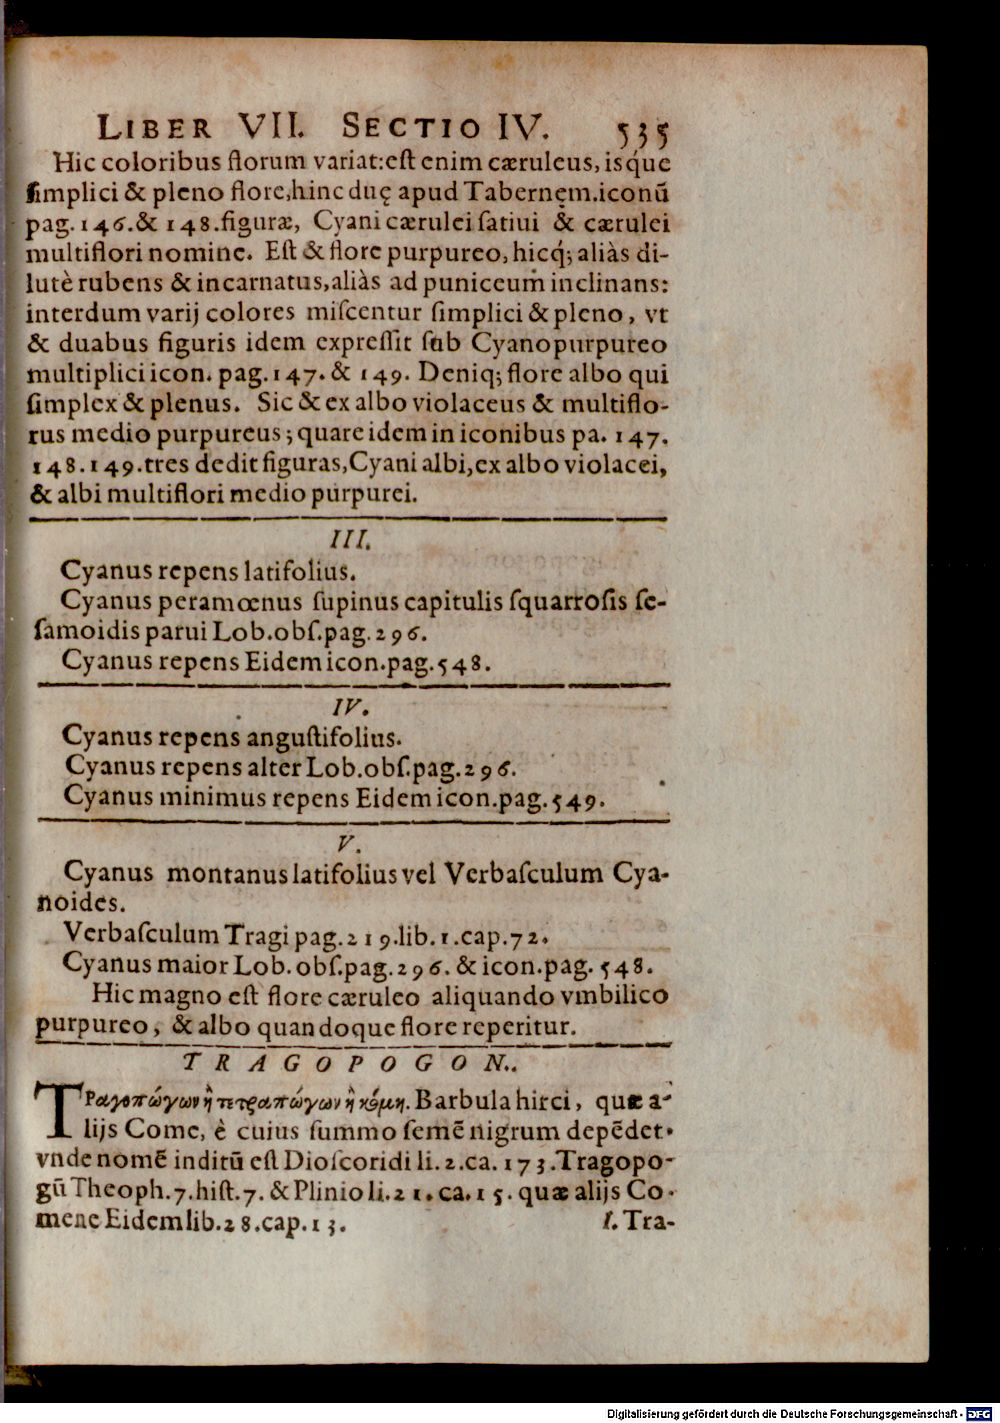 LIBER VII. SECTIO IV. 535
Hic coloribus florum variat: est enim cæruleus, isq́ue
simplici & pleno flore, hinc duę apud Tabernęm. iconũ
pag. 146. & 148. figuræ, Cyani cærulei satiui & cærulei
multiflori nomine. Est & flore purpureo, hicq́; aliàs di-
lutè rubens & incarnatus, aliàs ad puniceum inclinans:
interdum varij colores miscentur simplici & pleno, vt
& duabus figuris idem expressit sub Cyano purpureo
multiplici icon. pag. 147. & 149. Deniq; flore albo qui
simplex & plenus. Sic & ex albo violaceus & multiflo-
rus medio purpureus; quare idem in iconibus pa. 147.
148. 149. tres dedit figuras, Cyani albi, ex albo violacei,
& albi multiflori medio purpurei.
III.
Cyanus repens latifolius.
Cyanus peramœnus supinus capitulis squarrosis se-
samoidis parui Lob. obs. pag. 296.
Cyanus repens Eidem icon. pag. 548.
IV.
Cyanus repens angustifolius.
Cyanus repens alter Lob. obs. pag. 296.
Cyanus minimus repens Eidem icon. pag. 549.
V.
Cyanus montanus latifolius vel Verbasculum Cya-
noides.
Verbasculum Tragi pag. 219. lib. 1. cap. 72.
Cyanus maior Lob. obs. pag. 296. & icon. pag. 548.
Hic magno est flore cæruleo aliquando vmbilico
purpureo, & albo quandoque flore reperitur.
TRAGOPOGON.
Τραγοπώγων ἢ τετραπώγων ἢ κόμη. Barbula hirci, quæ a-
lijs Come, è cuius summo semẽ nigrum depẽdet.
vnde nomẽ inditũ est Dioscoridi li. 2. ca. 173. Tragopo-
gũ Theoph. 7. hist. 7. & Plinio li. 21. ca. 15. quæ alijs Co-
mene Eidem lib. 28. cap. 13.
I. Tra-
Digitalisierung gefördert durch die Deutsche Forschungsgemeinschaft - DFG